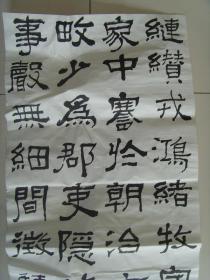 縺纘戎鴻緒牧守
家中謇於朝治
畋少為郡吏隱
事聲無細間徵